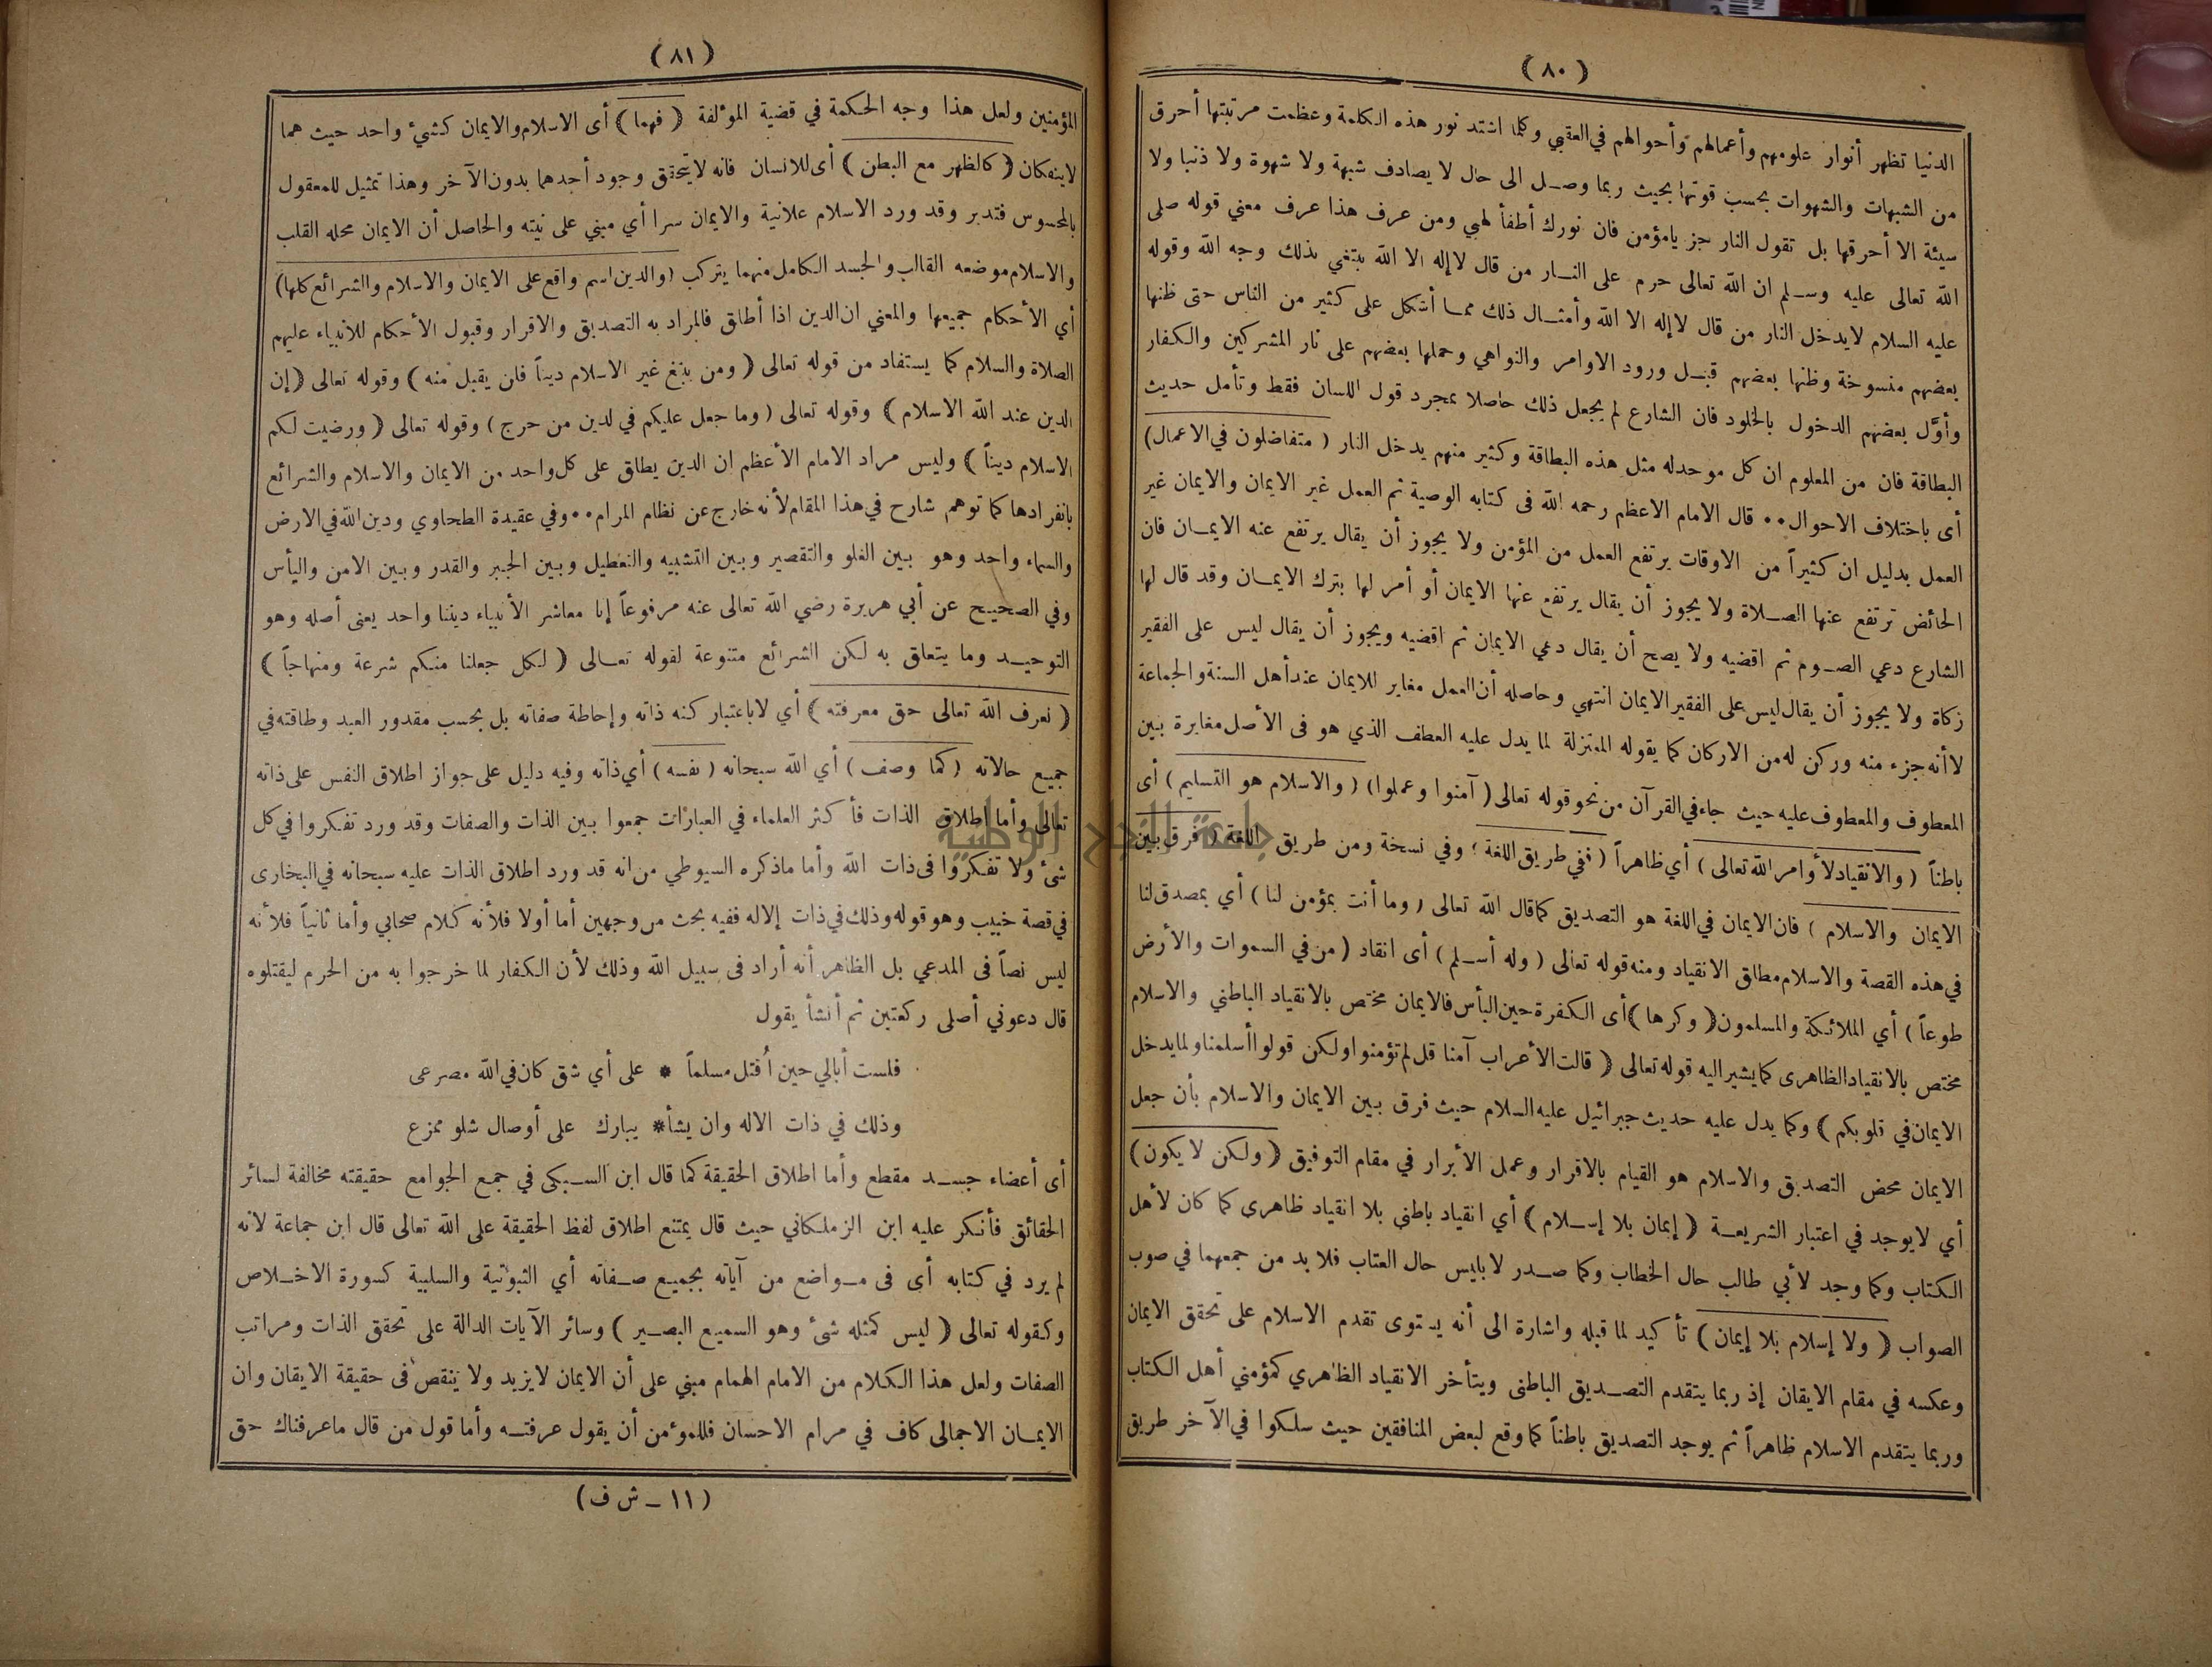 (٨٠)
الدنيا تظهر أنوار علومهم وأعمالهم وأحوالهم في العقبي وكلما اشتد نور هذه الكلمة وعظمت مرتبتها أحرق
من الشبهات والشهوات بحسب قوتها بحيث ربما وصل الى حال لا يصادف شبهة ولا شهوة ولا ذنبا ولا
سيئة الا أحرقها بل تقول النار جز يامؤمن فان نورك أطفأ لهبي ومن عرف هذا عرف معني قوله صلى
الله تعالى عليه وسلم ان الله تعالى حرم على النار من قال لاإله الا الله يبتغي بذلك وجه الله وقوله
عليه السلام لايدخل النار من قال لاإله الا الله وأمثال ذلك مما أشكل على كثير من الناس حتى ظنها
بعضهم منسوخة وظنها بعضهم قبل ورود الاوامر والنواهي وحملها بعضهم على نار المشركين والكفار
وأوَّل بعضهم الدخول بالخلود فان الشارع لم يجعل ذلك حاصلا بمجرد قول اللسان فقط وتأمل حديث
البطاقة فان من المعلوم ان كل موحدله مثل هذه البطاقة وكثير منهم يدخل النار (متفاضلون في الاعمال)
أى باختلاف الاحوال.. قال الامام الاعظم رحمه الله فى كتابه الوصية ثم العمل غير الايمان والايمان غير
العمل بدليل ان كثيراً من الاوقات يرتفع العمل من المؤمن ولا يجوز أن يقال يرتفع عنه الايمان فان
الحائض ترتفع عنها الصلاة ولا يجوز أن يقال يرتفع عنها الايمان أو أمر لها بترك الايمان وقد قال لها
الشارع دعي الصوم ثم اقضيه ولا يصح أن يقال دعي الايمان ثم اقضيه ويجوز أن يقال ليس على الفقير
زكاة ولا يجوز أن يقال ليس على الفقير الايمان انتهي وحاصله أن العمل مغاير للايمان عند أهل السنة والجماعة
لاأنه جزء منه وركن له من الاركان كما يقوله المعتزلة لما يدل عليه العطف الذي هو فى الأصل مغايرة بين
المعطوف والمعطوف عليه حيث جاء في القرآن من نحو قوله تعالى (آمنوا وعملوا) (والاسلام هو التسليم) أى
باطناً (والانقياد لأوامر الله تعالى) أي ظاهراً (ففي طريق اللغة) وفي نسخة ومن طريق اللغة (فرق بين
الايمان والاسلام) فان الايمان في اللغة هو التصديق كما قال الله تعالى (وما أنت بمؤمن لنا) أي بمصدق لنا
في هذه القصة والاسلام مطلق الانقياد ومنه قوله تعالى (وله أسلم) أى انقاد (من في السموات والأرض
طوعاً) أي الملائكة والمسلمون (وكرها) أى الكفرة حين البأس فالايمان مختص بالانقياد الباطني والاسلام
مختص بالانقياد الظاهرى كما يشير اليه قوله تعالى (قالت الأعراب آمنا قل لم تؤمنوا ولكن قولوا أسلمنا ولما يدخل
الايمان في قلوبكم) وكما يدل عليه حديث جبرائيل عليه السلام حيث فرق بين الايمان والاسلام بأن جعل
الايمان محض التصديق والاسلام هو القيام بالاقرار وعمل الأبرار في مقام التوفيق (ولكن لا يكون)
أي لايوجد في اعتبار الشريعة (إيمان بلا إسلام) أي انقياد باطني بلا انقياد ظاهرى كما كان لأهل
الكتاب وكما وجد لأبي طالب حال الخطاب وكما صدر لابليس حال العتاب فلا بد من جمعهما في صوب
الصواب (ولا إسلام بلا إيمان) تأكيد لما قبله واشارة الى أنه يستوى تقدم الاسلام على تحقق الايمان
وعكسه في مقام الايقان إذ ربما يتقدم التصديق الباطنى ويتأخر الانقياد الظاهري كمؤمني أهل الكتاب
وربما يتقدم الاسلام ظاهراً ثم يوجد التصديق باطناً كما وقع لبعض المنافقين حيث سلكوا في الآخر طريق
(٨١)
المؤمنين ولعل هذا وجه الحكمة في قضية المؤلفة (فهما) أى الاسلام والايمان كشئ واحد حيث هما
لاينفكان (كالظهر مع البطن) أى للانسان فانه لايتحقق وجود أحدهما بدون الآخر وهذا تمثيل للمعقول
بالمحسوس فتدبر وقد ورد الاسلام علانية والايمان سرا أي مبني على نيته والحاصل أن الايمان محله القلب
والاسلام موضعه القالب والجسد الكامل منهما يتركب (والدين اسم واقع على الايمان والاسلام والشرائع كلها)
أي الأحكام جميعها والمعني ان الدين اذا أطلق فالمراد به التصديق والاقرار وقبول الأحكام للأنبياء عليهم
الصلاة والسلام كما يستفاد من قوله تعالى (ومن يبتغ غير الاسلام ديناً فلن يقبل منه) وقوله تعالى (إن
الدين عند الله الاسلام) وقوله تعالى (وما جعل عليكم في لدين من حرج) وقوله تعالى (ورضيت لكم
الاسلام ديناً) وليس مراد الامام الأعظم ان الدين يطلق على كل واحد من الايمان والاسلام والشرائع
بانفرادها كما توهم شارح في هذا المقام لأنه خارج عن نظام المرام.. وفي عقيدة الطحاوي ودين الله في الارض
والسماء واحد وهو بين الغلو والتقصير وبين التشبيه والتعطيل وبين الجبر والقدر وبين الامن واليأس
وفي الصحيح عن أبي هريرة رضي الله تعالى عنه مرفوعاً إنا معاشر الأنبياء ديننا واحد يعنى أصله وهو
التوحيد وما يتعلق به لكن الشرائع متنوعة لقوله تعالى (لكل جعلنا منكم شرعة ومنهاجاً)
(نعرف الله تعالى حق معرفته) أي لاباعتبار كنه ذاته وإحاطة صفاته بل بحسب مقدور العبد وطاقته في
جميع حالاته (كما وصف) أي الله سبحانه (نفسه) أي ذاته وفيه دليل على جواز اطلاق النفس على ذاته
تعالى وأما اطلاق الذات فأكثر العلماء في العبارات جمعوا بين الذات والصفات وقد ورد تفكروا في كل
شئ ولا تفكروا فى ذات الله وأما ماذكره السيوطي من انه قد ورد اطلاق الذات عليه سبحانه في البخارى
في قصة خبيب وهو قوله وذلك في ذات إلاله ففيه بحث من وجهين أما أولا فلأنه كلام صحابي وأما ثانياً فلأنه
ليس نصاً فى المدعي بل الظاهر أنه أراد فى سبيل الله وذلك لأن الكفار لما خرجوا به من الحرم ليقتلوه
قال دعوني أصلى ركعتين ثم أنشأ يقول
فلست أبالي حين أُقتل مسلماً * على أي شق كان في الله مصرعى
وذلك في ذات الاله وان يشأ* يبارك على أوصال شلو ممزع
أى أعضاء جسد مقطع وأما اطلاق الحقيقة كما قال ابن السبكى في جمع الجوامع حقيقته مخالفة لسائر
الحقائق فأنكر عليه ابن الزملكاني حيث قال يمتنع اطلاق لفظ الحقيقة على الله تعالى قال ابن جماعة لانه
لم يرد في كتابه أى فى مواضع من آياته بجميع صفاته أي الثبوتية والسلبية كسورة الاخلاص
وكقوله تعالى (ليس كمثله شئ وهو السميع البصير) وسائر الآيات الدالة على تحقق الذات ومراتب
الصفات ولعل هذا الكلام من الامام الهمام مبني على أن الايمان لايزيد ولا ينقص فى حقيقة الايقان وان
الايمان الاجمالى كاف في مرام الاحسان فللمؤمن أن يقول عرفته وأما قول من قال ماعرفناك حق
(١١ ــ ش ف)
جامعة النجاح الوطنية